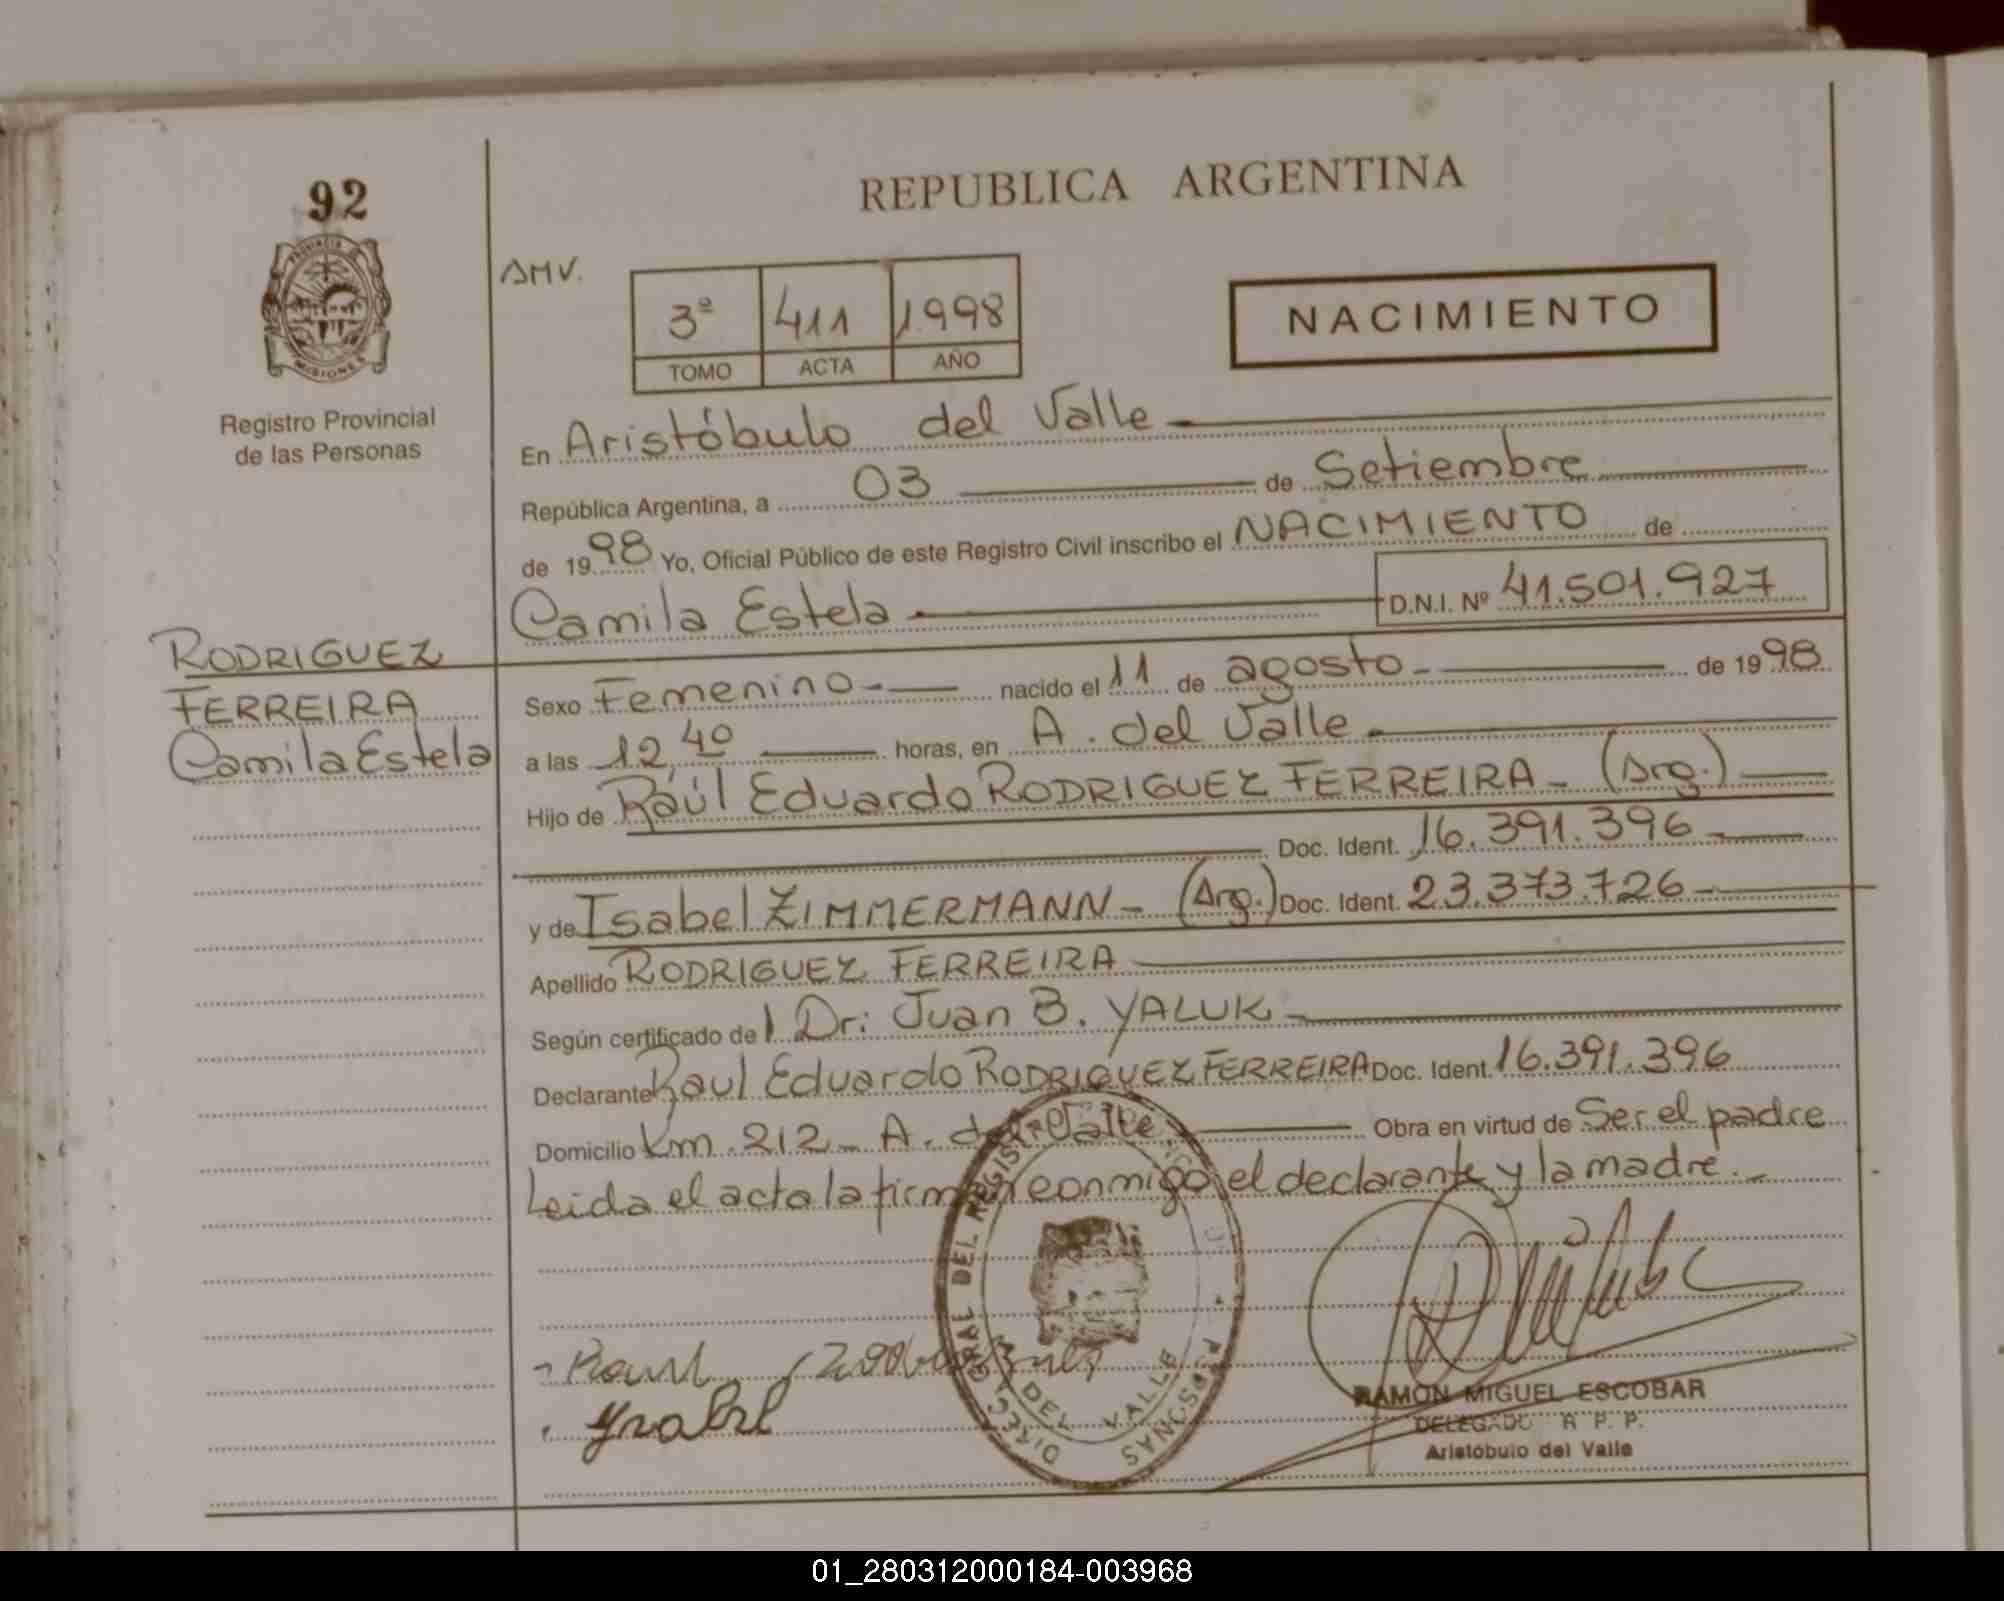 92
PROVINCIA DE
MISIONES
Registro Provincial
de las Personas
REPUBLICA ARGENTINA
AMV.
3º 411 1998
TOMO ACTA AÑO
NACIMIENTO
En Aristóbulo del Valle
República Argentina, a 03 de Setiembre
de 1998 Yo, Oficial Público de este Registro Civil inscribo el NACIMIENTO de
Camila Estela D.N.I. Nº 41.501.927
RODRIGUEZ
FERREIRA
Camila Estela
Sexo Femenino nacido el 11 de agosto de 1998
a las 12,40 horas, en A. del Valle
Hijo de Raúl Eduardo RODRIGUEZ FERREIRA - (Arg.)
Doc. Ident. 16.391.396
y de Isabel ZIMMERMANN - (Arg.) Doc. Ident. 23.373.726
Apellido RODRIGUEZ FERREIRA
Según certificado del Dr: Juan B. YALUK
Declarante Raul Eduardo RODRIGUEZ FERREIRA Doc. Ident. 16.391.396
Domicilio Km. 212 - A. del Valle. Obra en virtud de Ser el padre
Leida el acta la firman conmigo, el declarante y la madre.
DEL VALLE
RAMON MIGUEL ESCOBAR
DELEGADO R. P. P.
Aristóbulo del Valle
01_280312000184-003968